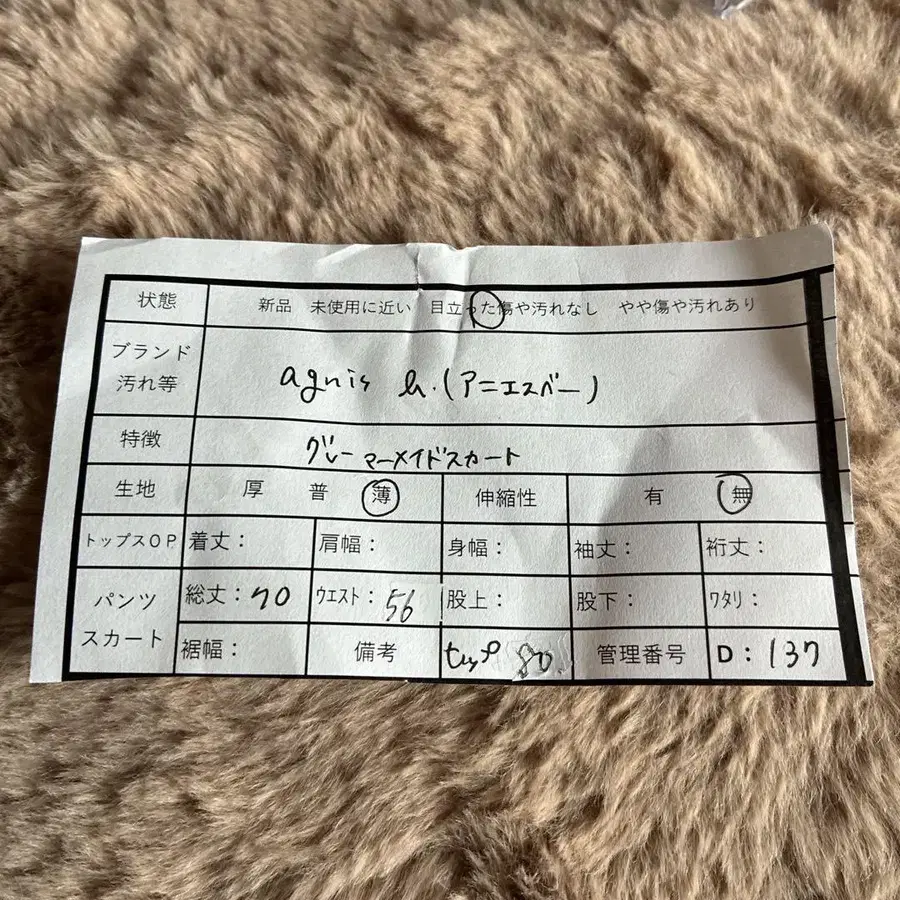 状態 新品 未使用に近い 目立った傷や汚れなし やや傷や汚れあり
ブランド
汚れ等 agnis b.(アニエスベー)
特徴 グレー マーメイドスカート
生地 厚 普 薄 伸縮性 有 無
トップスOP 着丈: 肩幅: 身幅: 袖丈: 裄丈:
パンツ
スカート 総丈:70 ウエスト:56 股上: 股下: ワタリ:
裾幅: 備考 ヒップ 80. 管理番号 D:137